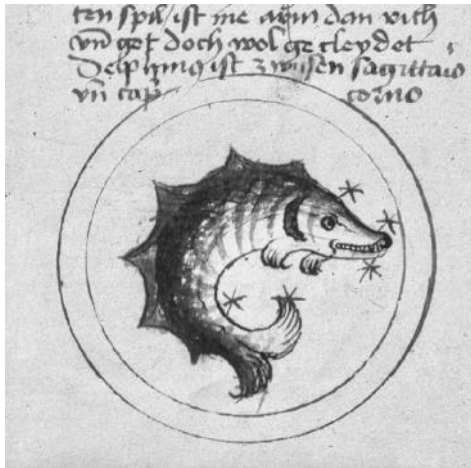 ten spil / ist me dan vich
vn get doch wol ge cleydet
Delphinus ist zwisen sagittario
vn cap cornio